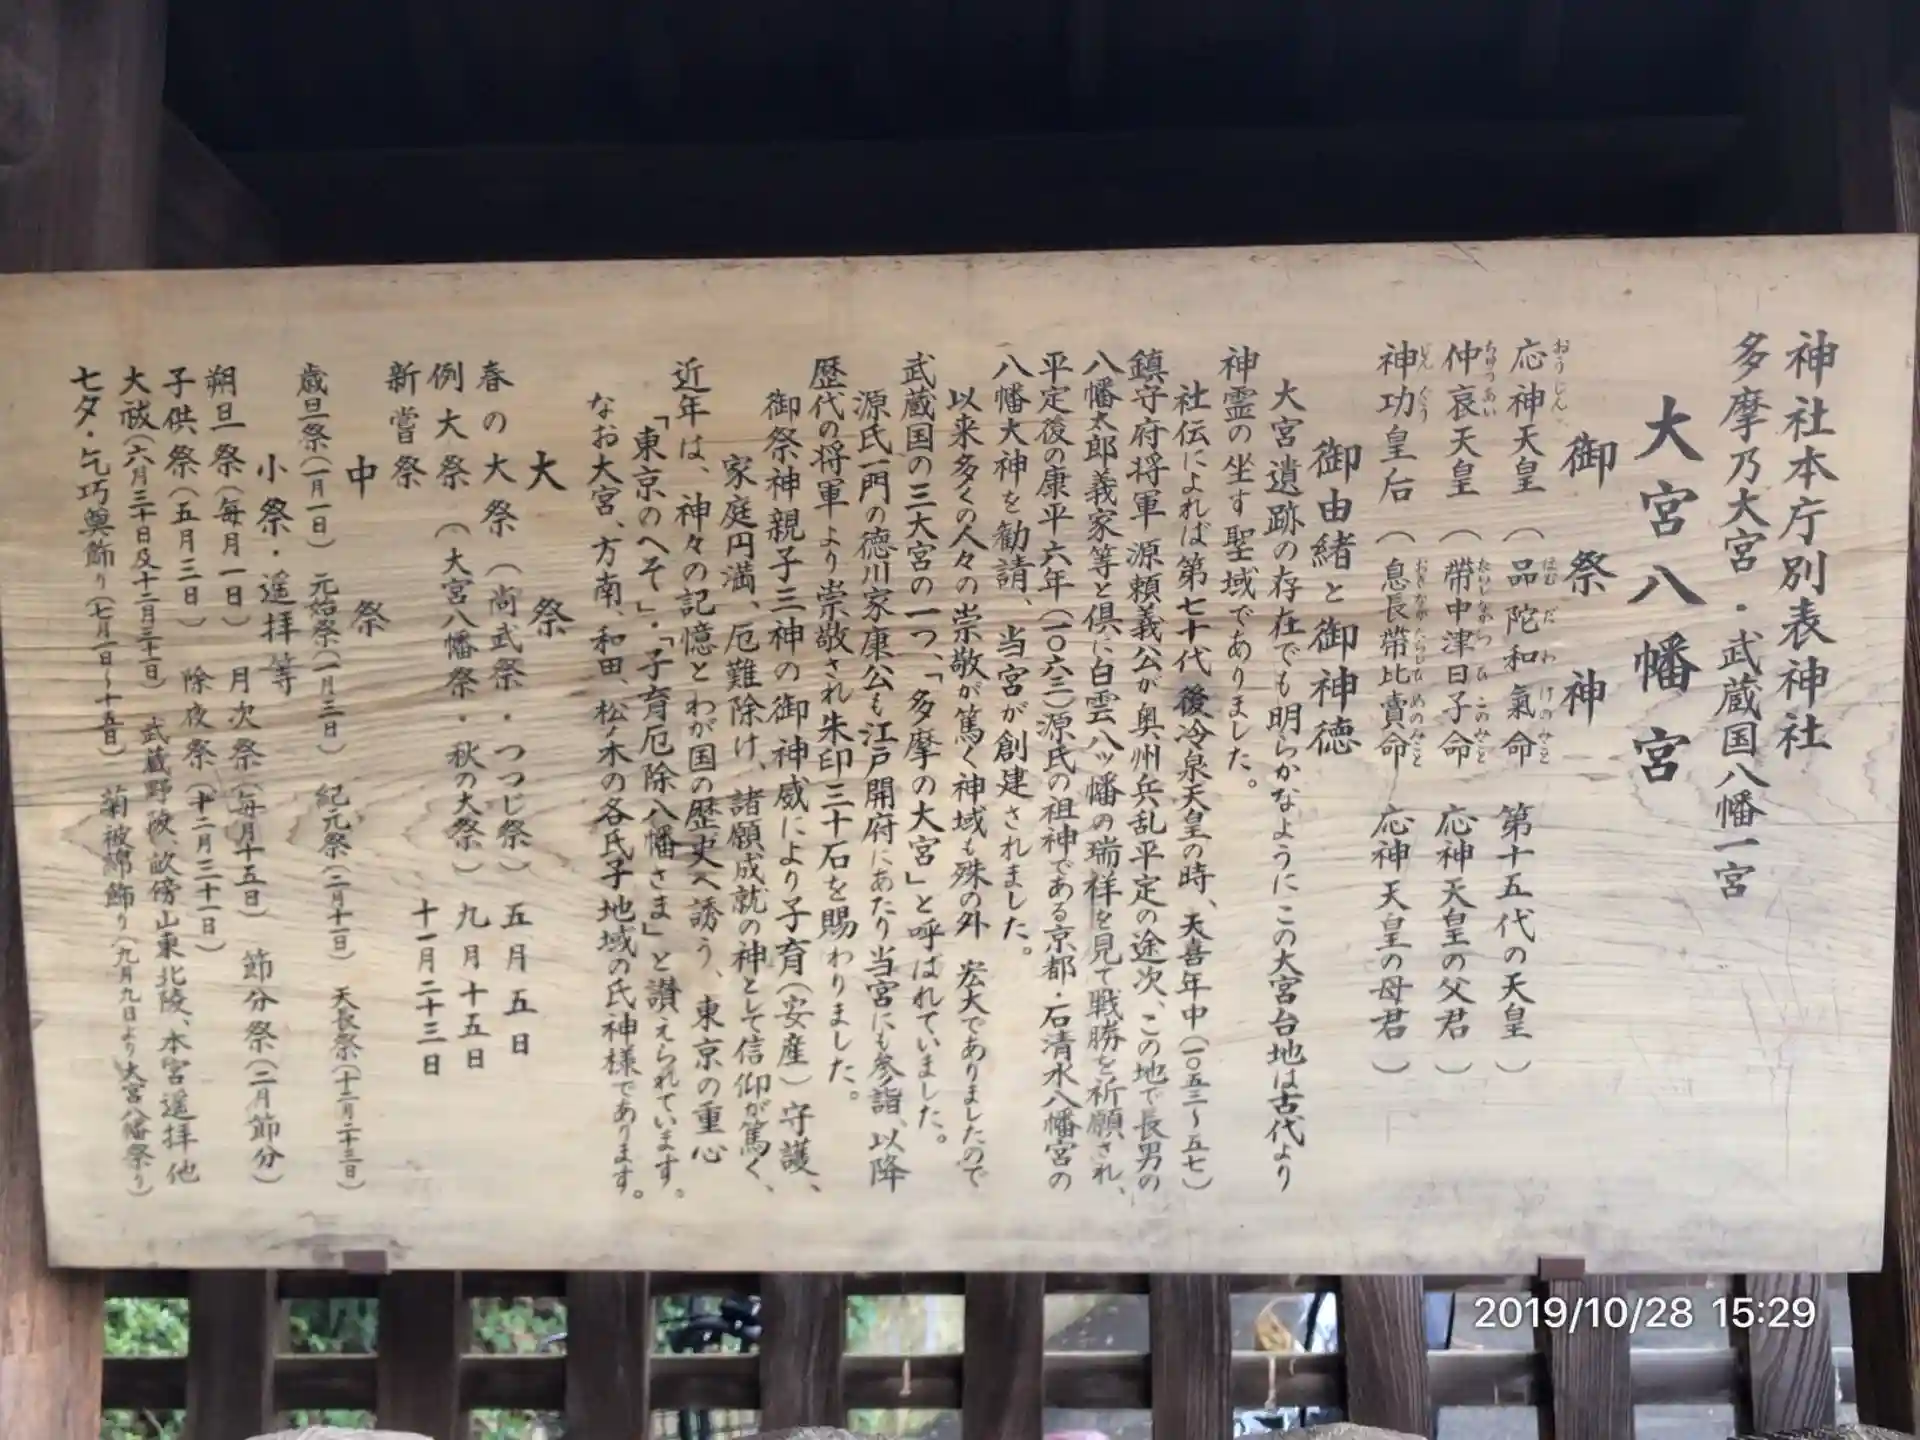 神社本庁別表神社
多摩乃大宮・武蔵国八幡一宮
大宮八幡宮
御祭神
応神天皇（品陀和氣命　第十五代の天皇）
おうじん　ほむだわけのみこと
仲哀天皇（帶中津日子命　応神天皇の父君）
ちゅうあい　たらしなかつひこのみこと
神功皇后（息長帶比賣命　応神天皇の母君）
じんぐう　おきながたらしひめのみこと
御由緒と御神徳
大宮遺跡の存在でも明らかなようにこの大宮台地は古代より
神霊の坐す聖域でありました。
社伝によれば第七十代 後冷泉天皇の時、天喜年中（一〇五三～五七）
鎮守府将軍 源頼義公が奥州兵乱平定の途次、この地で長男の
八幡太郎義家等と倶に白雲八ッ幡の瑞祥を見て戦勝を祈願され、
平定後の康平六年（一〇六三）源氏の祖神である京都・石清水八幡宮の
八幡大神を勧請、当宮が創建されました。
以来多くの人々の崇敬が篤く神域も殊の外 宏大でありましたので
武蔵国の三大宮の一つ、「多摩の大宮」と呼ばれていました。
源氏一門の徳川家康公も江戸開府にあたり当宮にも参詣、以降
歴代の将軍より崇敬され朱印三十石を賜わりました。
御祭神親子三神の御神威により子育（安産）守護、
家庭円満、厄難除け、諸願成就の神として信仰が篤く、
近年は、神々の記憶とわが国の歴史へ誘う、東京の重心
「東京のへそ」・「子育厄除八幡さま」と讃えられています。
なお大宮、方南、和田、松ノ木の各氏子地域の氏神様であります。
大祭
春の大祭（尚武祭・つつじ祭）五月五日
例大祭（大宮八幡祭・秋の大祭）九月十五日
新嘗祭　十一月二十三日
中祭
歳旦祭（一月一日）　元始祭（一月三日）　紀元祭（二月十一日）　天長祭（十二月二十三日）
小祭・遥拝等
朔旦祭（毎月一日）　月次祭（毎月十五日）　節分祭（二月節分）
子供祭（五月三日）　除夜祭（十二月三十一日）
大祓（六月三十日及十二月三十一日）　武蔵野陵、畝傍山東北陵、本宮遥拝他
七夕・乞巧奠飾り（七月一日～十五日）　菊被綿飾り（九月九日より大宮八幡祭り）
2019/10/28 15:29